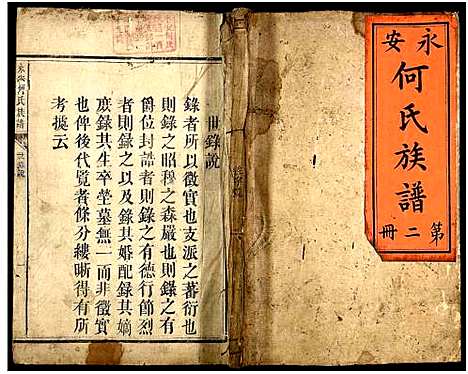 永安
何氏族譜
第二冊
世錄說
錄者所以徵實也支派之蕃衍也
則錄之昭穆之森嚴也則錄之有
爵位封誥者則錄之有德行節烈
者則錄之以及錄其婚配錄其嫡
庶錄其生卒塋墓無一而非徵實
也俾後代覽者條分縷晰得有所
考據云
永安何氏族譜